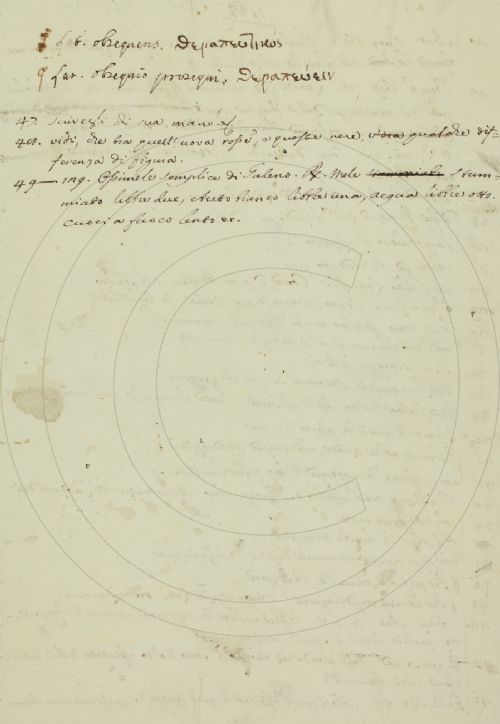 lat. obsequens. θεραπευτικος
lat. obsequio prosequi. θεραπευειν
47 scrivegli di sua mano es
48. vidi, che tra quell'uova rosse, e queste nere v'era qualche dif=
ferenza di figura.
49 — ing. Ossimele semplice di Galeno. Rx. Mele schium=
miato libbre due, Aceto bianco libbre una, acqua libbre otto.
cuoci a fuoco lento ec.